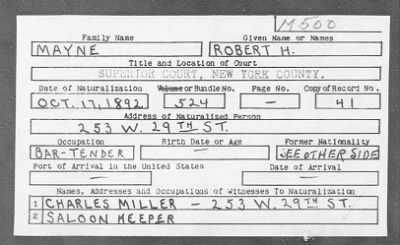 M500
Family Name Given Name or Names
MAYNE ROBERT H.
Title and Location of Court
SUPERIOR COURT, NEW YORK COUNTY.
Date of Naturalization Volume or Bundle No. Page No. Copy of Record No.
OCT. 17, 1892 524 — 41
Address of Naturalized Person
253 W. 29TH ST.
Occupation Birth Date or Age Former Nationality
BAR-TENDER — SEE OTHER SIDE
Port of Arrival in the United States Date of Arrival
— —
Names, Addresses and Occupations of Witnesses To Naturalization
1 CHARLES MILLER - 253 W. 29TH ST.
2 SALOON KEEPER